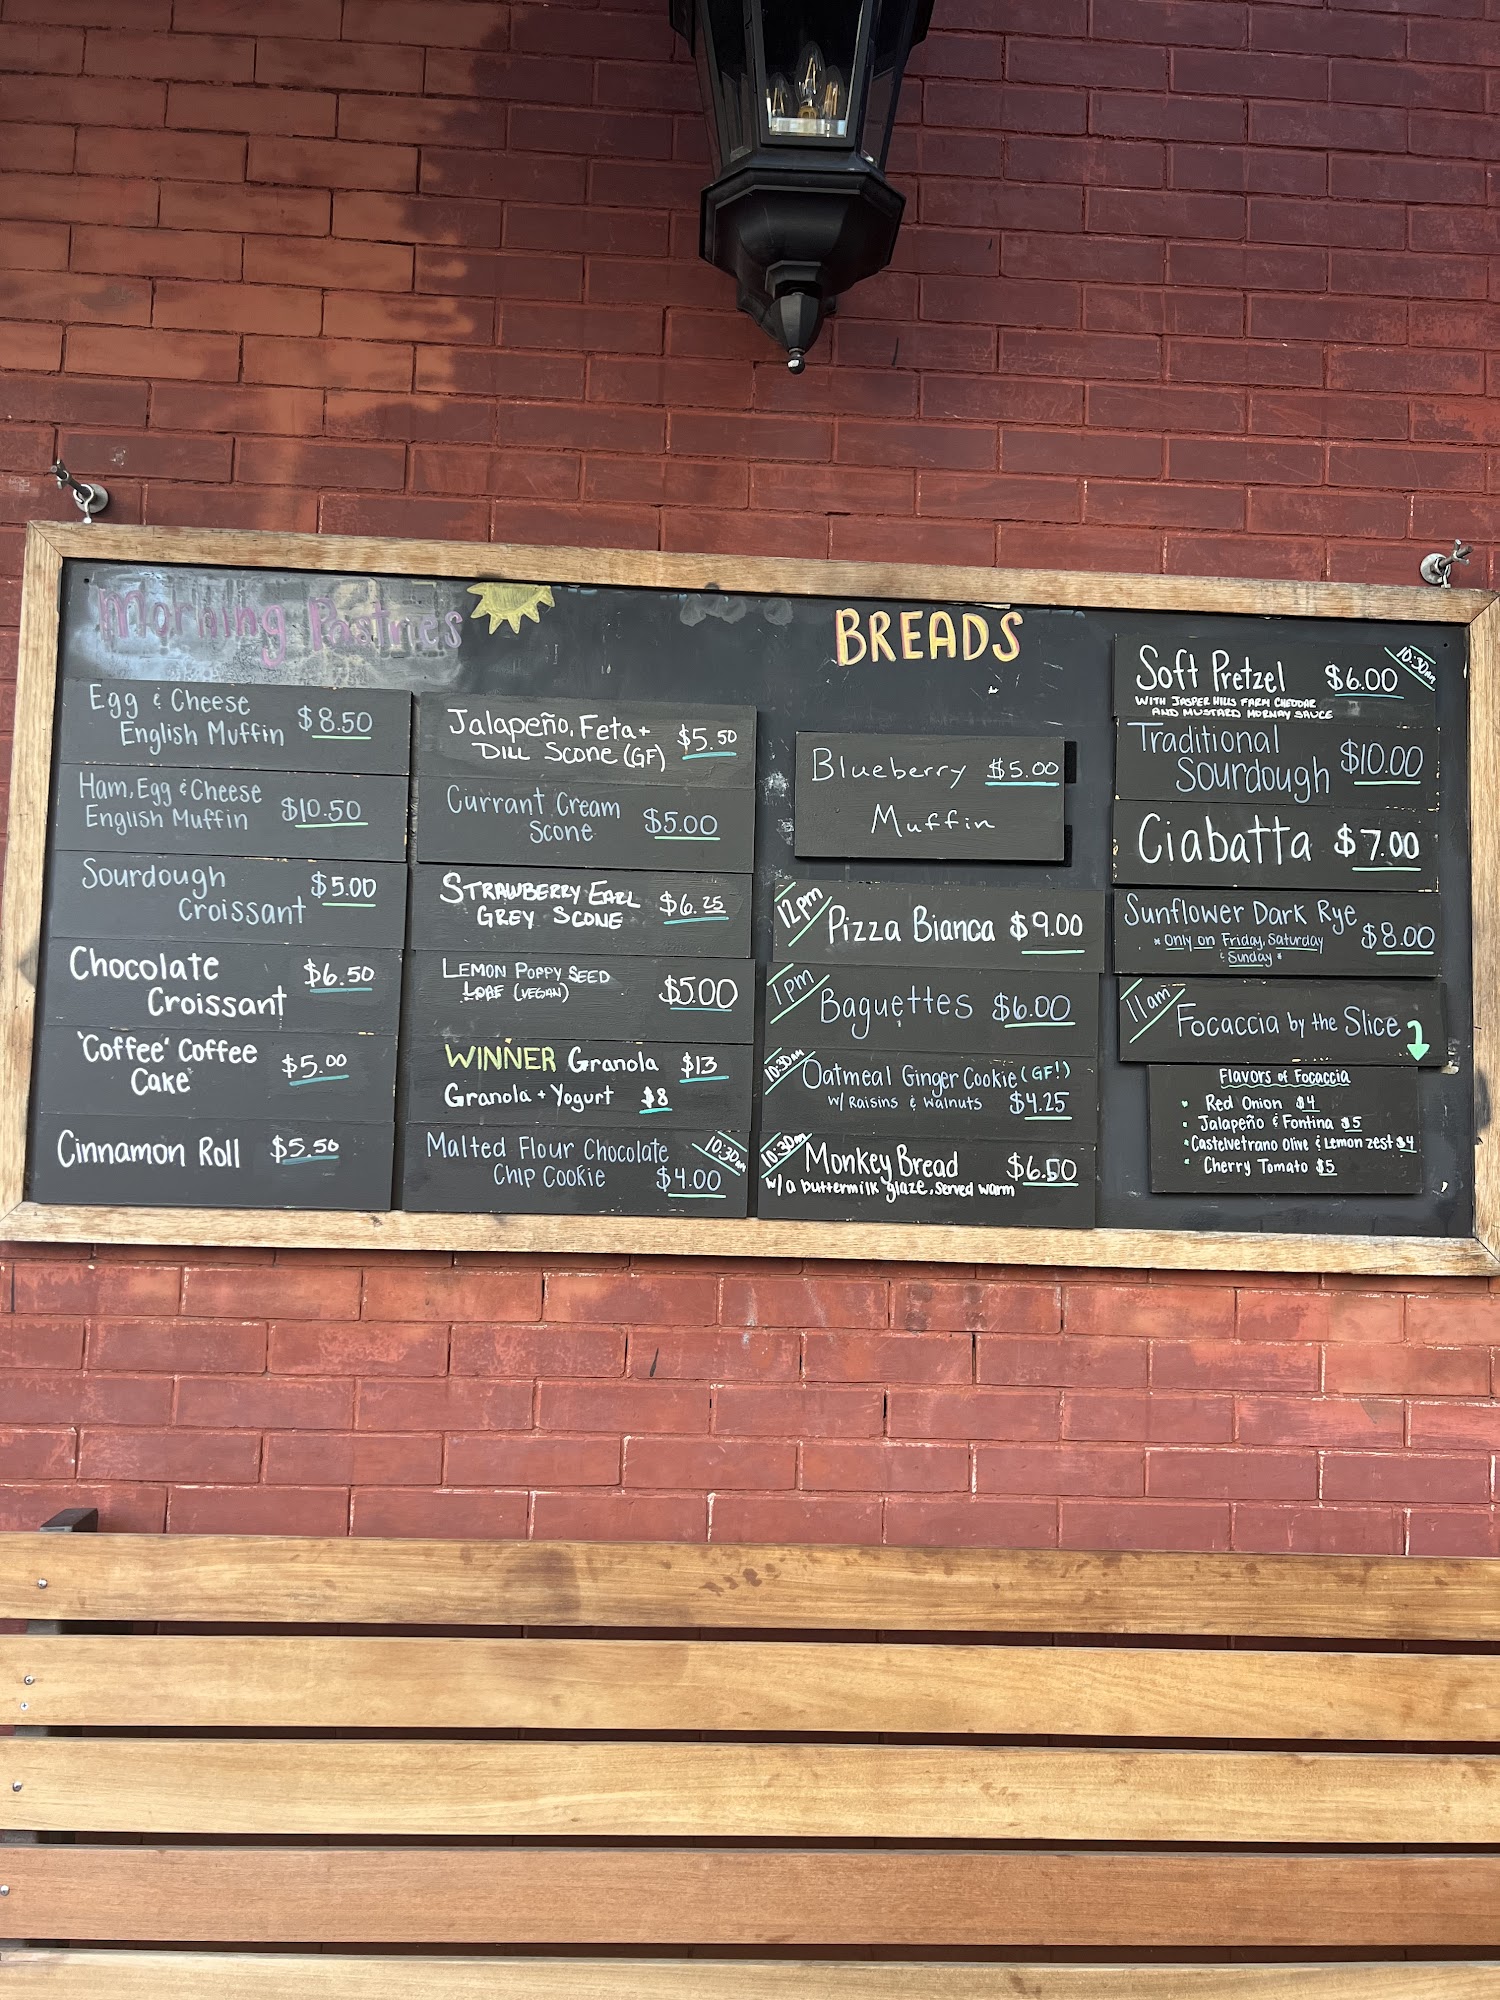 Morning Pastries
Egg & Cheese
English Muffin $8.50
Ham, Egg & Cheese
English Muffin $10.50
Sourdough
Croissant $5.00
Chocolate
Croissant $6.50
'Coffee' Coffee
Cake $5.00
Cinnamon Roll $5.50
Jalapeño, Feta +
Dill Scone (GF) $5.50
Currant Cream
Scone $5.00
STRAWBERRY EARL
GREY SCONE $6.25
LEMON POPPY SEED
LOAF (VEGAN) $5.00
WINNER Granola $13
Granola + Yogurt $8
Malted Flour Chocolate
Chip Cookie $4.00
10:30am
BREADS
Blueberry $5.00
Muffin
12pm
Pizza Bianca $9.00
1pm
Baguettes $6.00
10:30am
Oatmeal Ginger Cookie (GF!)
w/ Raisins & Walnuts $4.25
10:30am
Monkey Bread $6.50
w/ a buttermilk glaze, served warm
Soft Pretzel $6.00
10:30am
WITH JASPER HILLS FARM CHEDDAR
AND MUSTARD MORNAY SAUCE
Traditional
Sourdough $10.00
Ciabatta $7.00
Sunflower Dark Rye
* Only on Friday, Saturday
& Sunday * $8.00
11am
Focaccia by the Slice
Flavors of Focaccia
• Red Onion $4
• Jalapeño & Fontina $5
• Castelvetrano Olive & Lemon zest $4
• Cherry Tomato $5